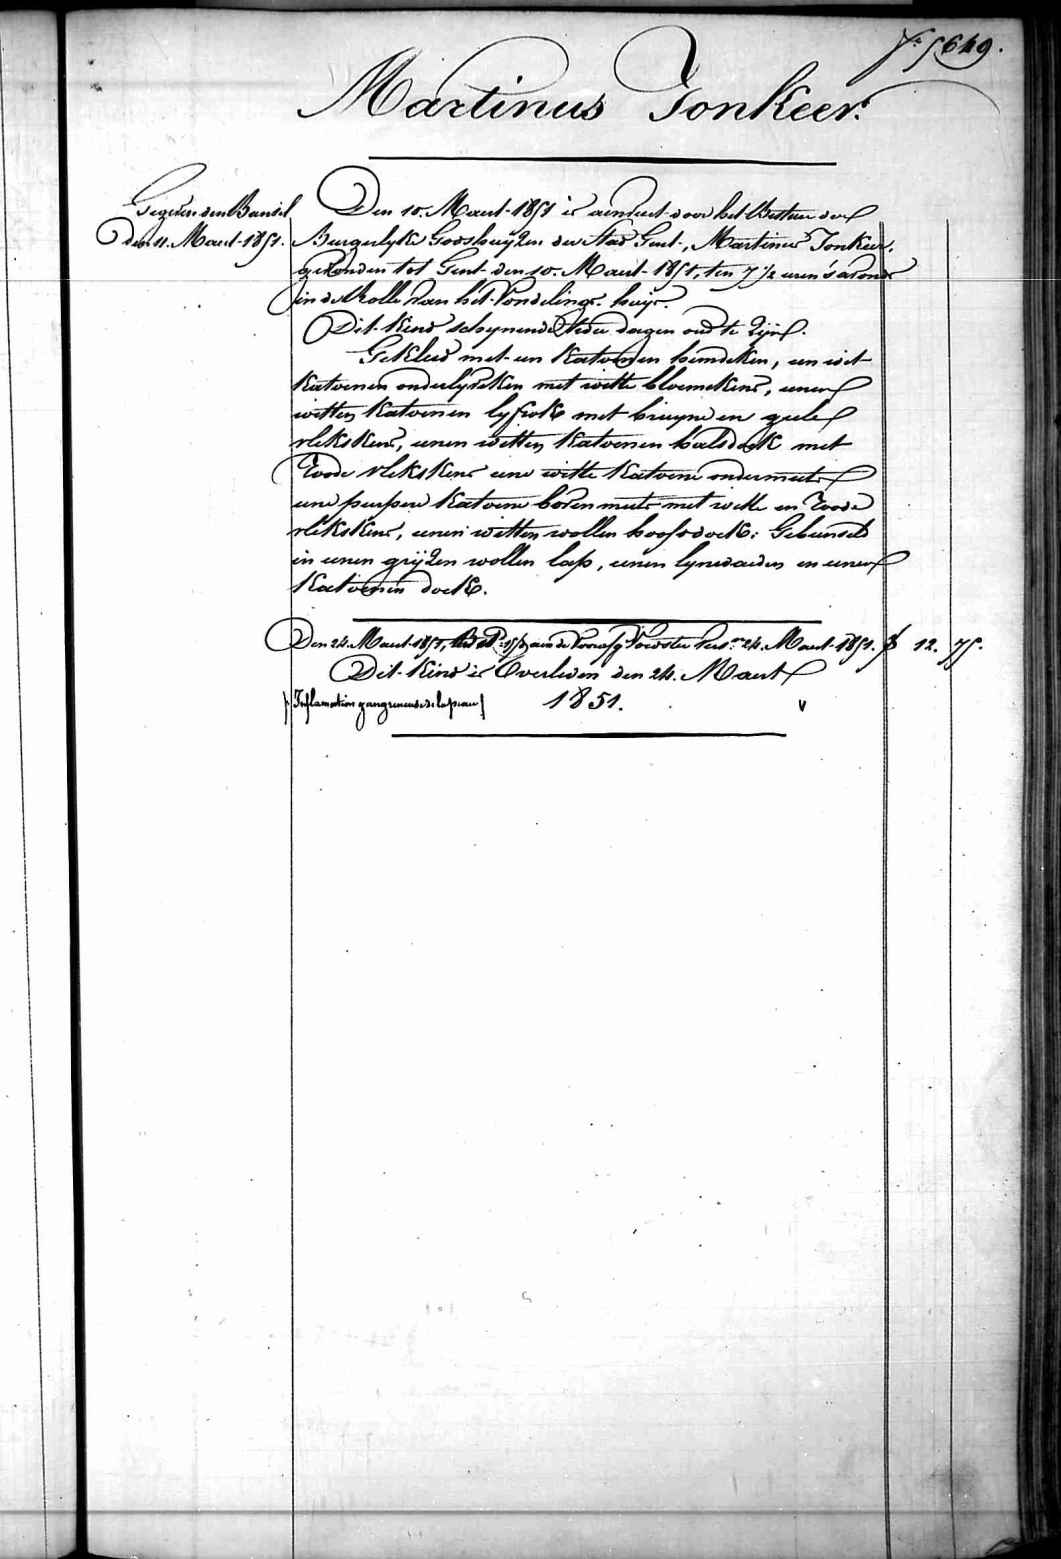 N.° 5649.
Martinus Jonkeer.
Gegeven den Bundel
den 11. Maert 1851.
Den 10. Maert 1851 is aenveert door het Bestuer der
Burgerlyke Godshuyzen der stad Gent, Martinus Jonkeer.
gevonden tot Gent den 10. Maert 1851, ten 7 1/2 uren 's avonds
in de Rolle van het Vondelings-huys.
Dit kind schynende dagen oud te zyn.
Gekleed met een katoenen hemdeken, een wit
katoenen onderlyveken met witte bloemekens, eenen
witten katoenen lyfrok met bruyne en geele
vlekskens, eenen witten katoenen halsdoek met
roode vlekskens eene witte katoene ondermuts
eene peerpere katoene bovenmuts met witte en roode
vlekskens, eenen witten wollen hoofddoek: Gebunseld
in eenen gryzen wollen lap, eenen lynwaeden en eenen
katoenen doek.
Den 24. Maert 1851, aen de Voedster 24. Maert 1851. 12. 75.
Dit kind is Overleden den 24. Maert
1851.
Inflamation gangreneuse de la peau